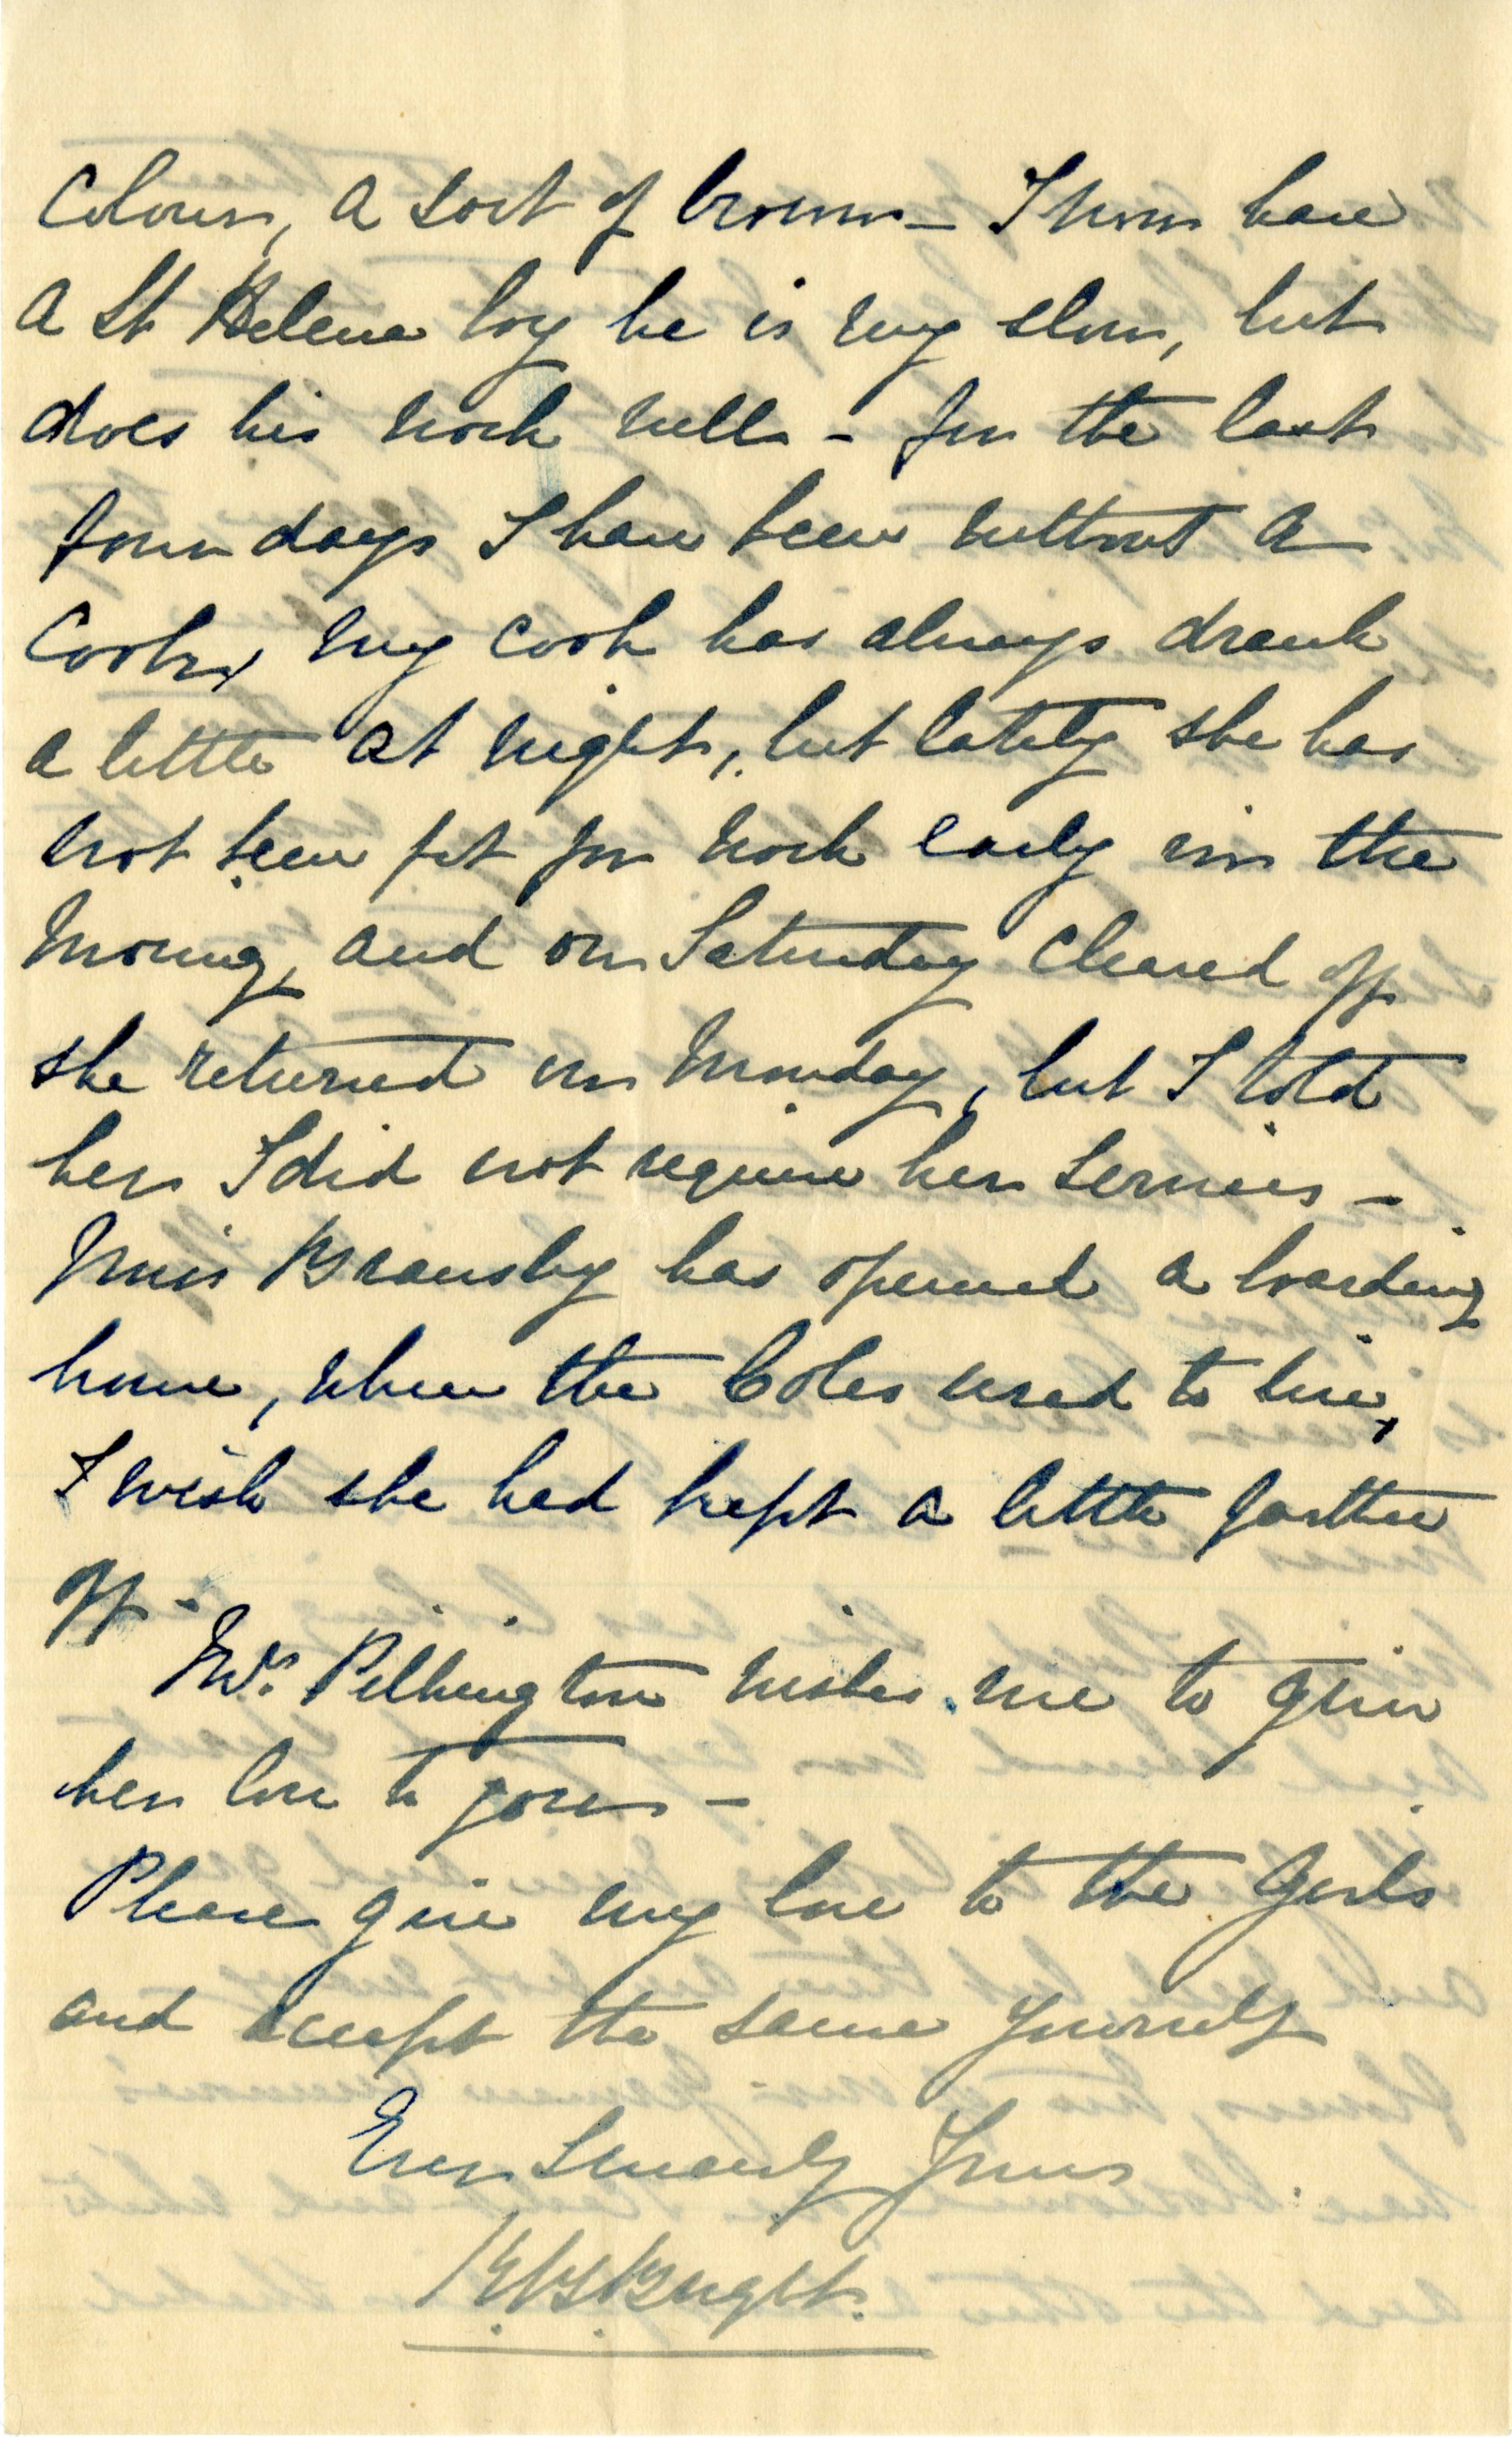 Colour, a sort of brown – I now have
a St Helena boy he is very slow, but
does his work well – for the last
four days I have been without a
Cook, my cook has always drank
a little at night, but lately she has
not been fit for work early in the
morning, and on Saturday cleared off
she returned on Monday, but I told
her I did not require her services –
Miss Bransby has opened a boarding
house, where the Coles used to live,
I wish she had kept a little farther
off –
Mrs. Pilkington wishes me to give
her love to you –
Please give my love to the Girls
and accept the same yourself
Ever Sincerely Yours
Bright.